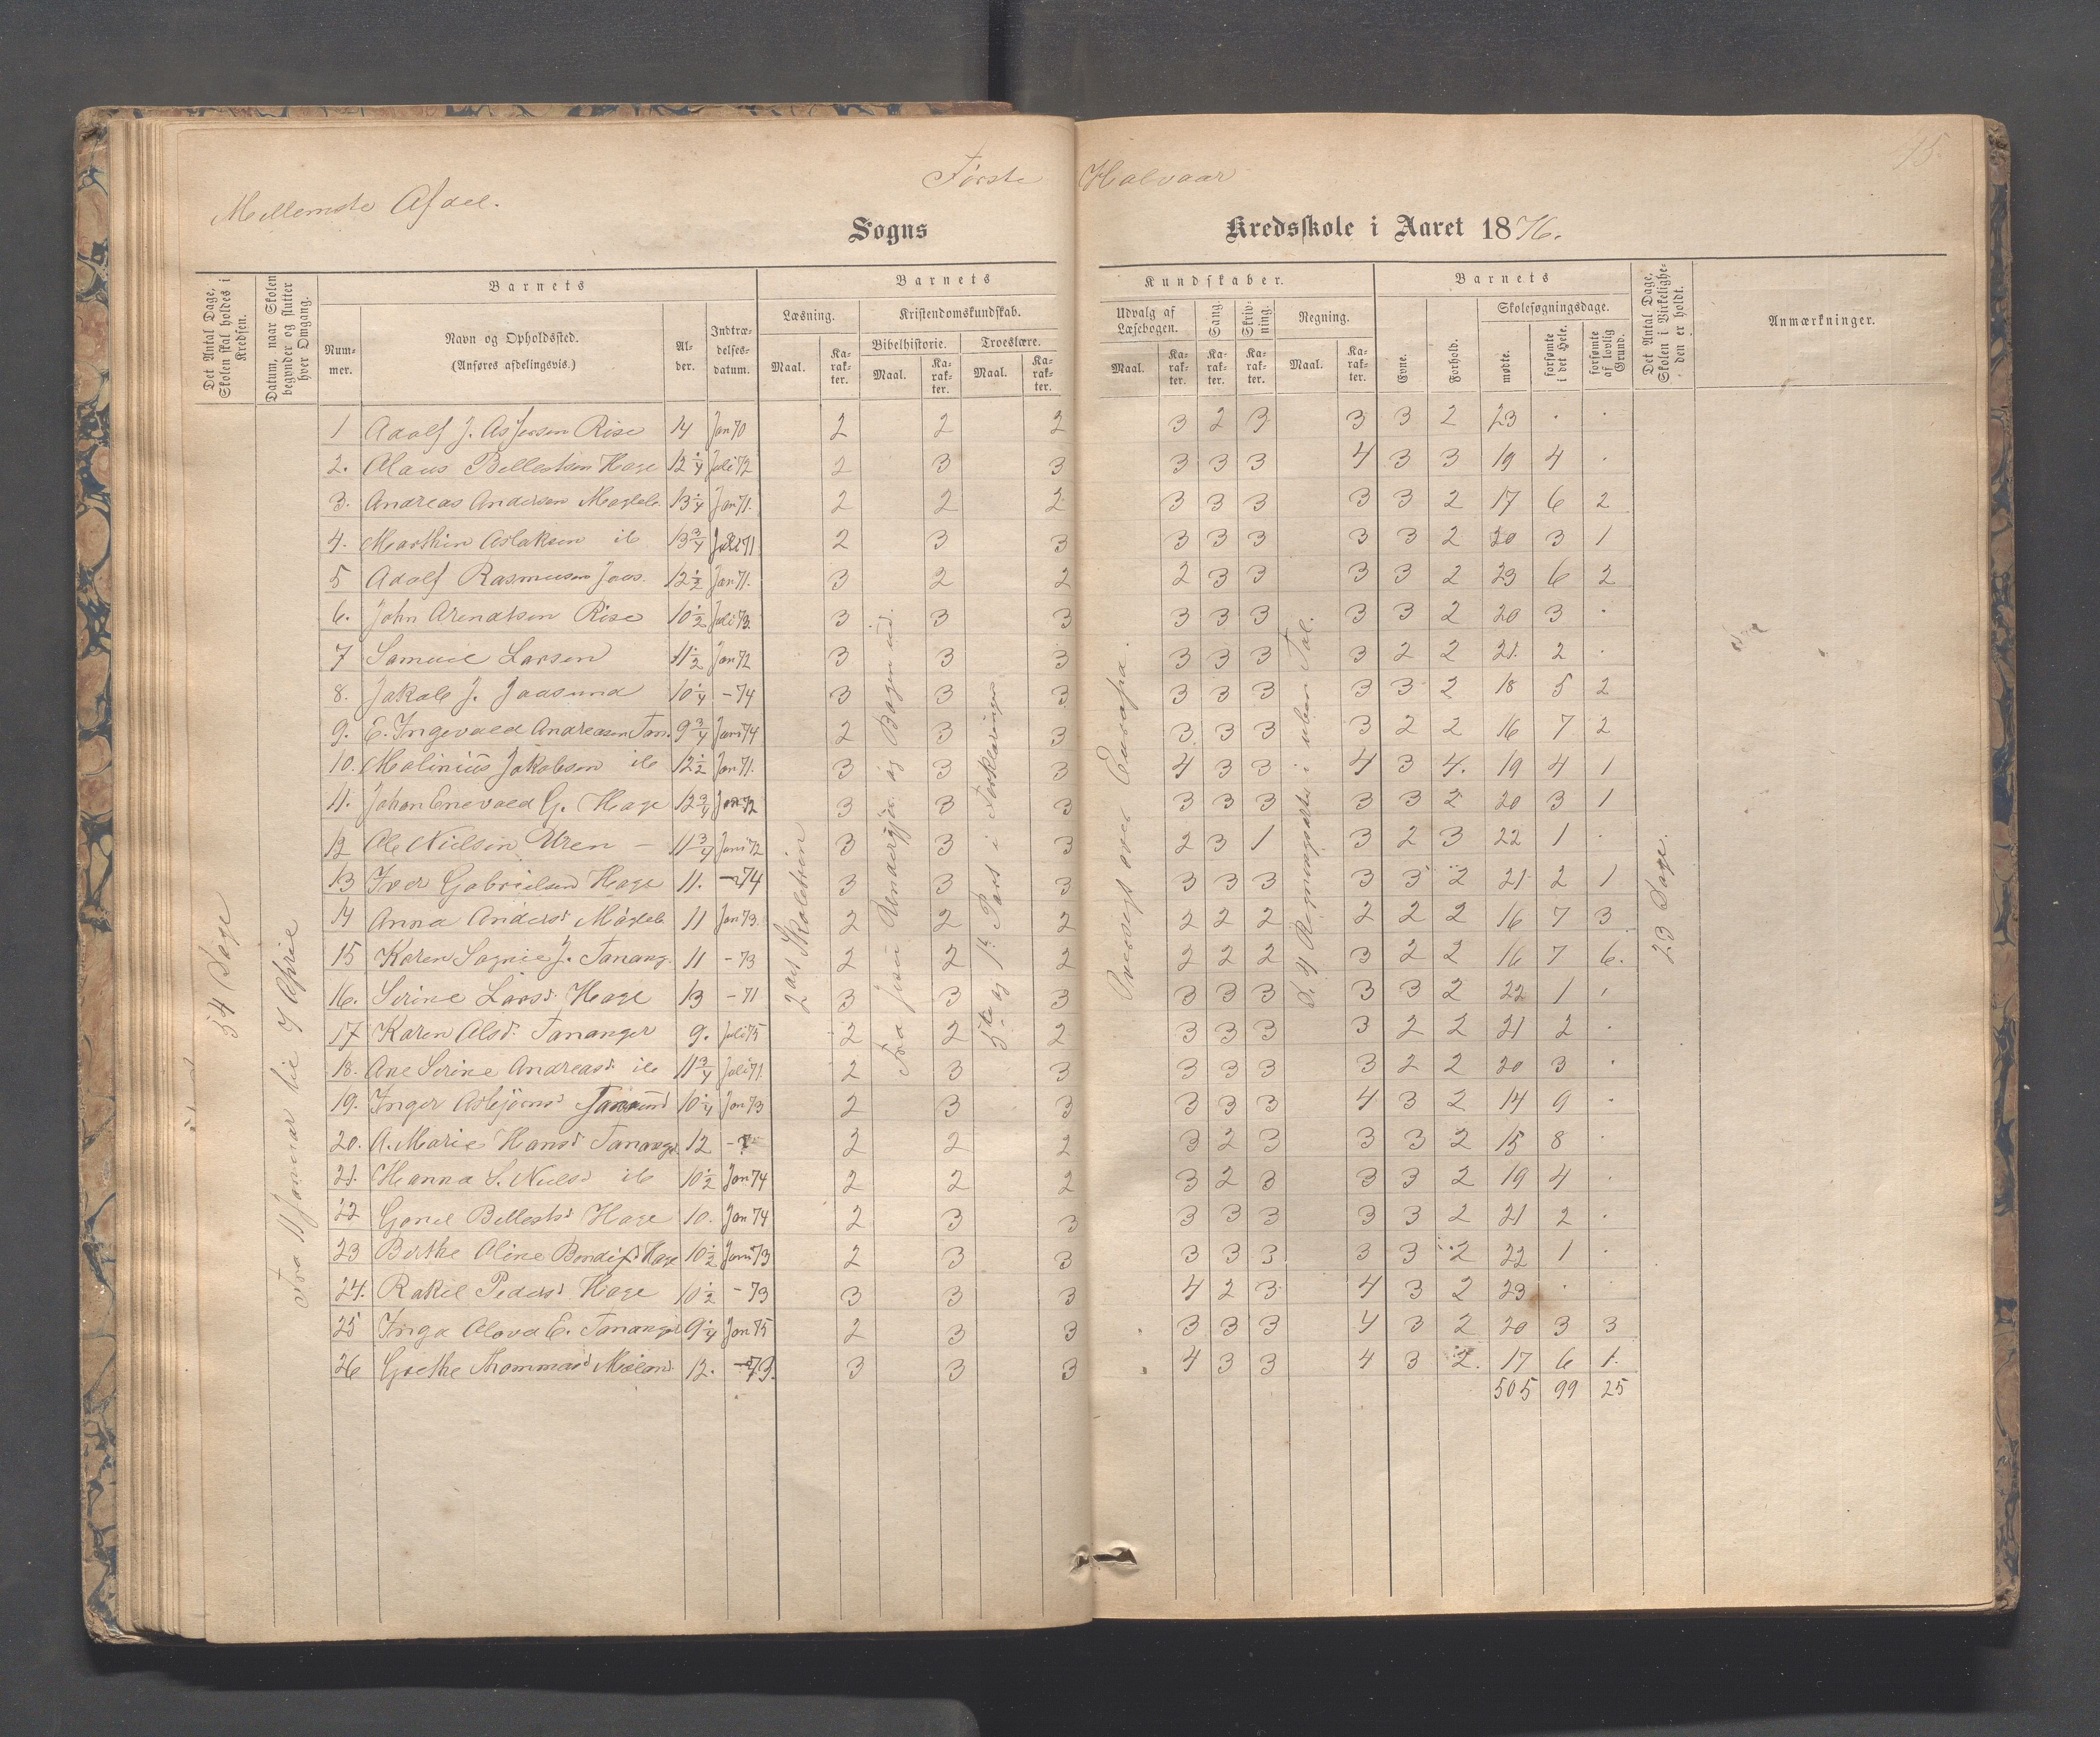 Første Halvaar
75.
Mellemste Afdel.
Sogns Kredsskole i Aaret 1876.
Det Antal Dage, Skolen skal holdes i Kredsen.
Datum, naar Skolen begynder og slutter hver Omgang.
Barnets
Num-mer.
Navn og Opholdssted. (Anføres afdelingsvis.)
Al-der.
Indtræ-delses-datum.
Barnets Kundskaber.
Læsning. Maal. Ka-rak-ter.
Kristendomskundskab.
Bibelhistorie. Maal. Ka-rak-ter.
Troeslære. Maal. Ka-rak-ter.
Udvalg af Læsebogen. Maal. Ka-rak-ter.
Sang. Ka-rak-ter.
Skriv-ning. Ka-rak-ter.
Regning. Maal. Ka-rak-ter.
Barnets
Evne.
Forhold.
Skolesøgningsdage.
mødte. forsømte i det Hele. forsømte af lovlig Grund.
Det Antal Dage, Skolen i Virkelighe-den er holdt.
Anmærkninger.
54 Dage
Fra 11 Januar til 7 April
2det Skoletrin
Fra Jesu Almdergjer. og Bogen ud.
5te og 1ste Part i Forklaringen
Oversigt over Europa.
De 4 Regningsarter i uben Tal.
23 Dage.
1 Adolf J. Asjersen Risе 14 Jan 70 2 2 2 3 2 3 3 3 2 23 . .
2. Olaus Bellestsen Hage 12 1/4 Juli 72 2 3 3 3 3 3 4 3 3 19 4 .
3. Andreas Andersen Magleb. 13 1/4 Jan 71. 2 2 2 3 3 3 3 3 2 17 6 2
4. Marthin Aslaksen ib 13 3/4 Juli 71 2 3 3 3 3 3 3 3 2 20 3 1
5 Adolf Rasmusen Joas. 12 1/2 Jan 71. 3 2 2 2 3 3 3 3 2 23 6 2
6. John Arentsen Rise 10 1/2 Juli 73. 3 3 3 3 3 3 3 3 2 20 3 .
7 Samuel Larsen 11 1/2 Jan 72 3 3 3 3 3 3 3 2 2 21. 2 .
8. Jakob J. Joasund 10 1/4 - 74 3 3 3 3 3 3 3 3 2 18 5 2
9. E. Ingevald Andreasen Tan. 9 3/4 Juni 74 2 3 3 3 3 3 3 2 2 16 7 2
10. Malinius Jakobsen ib 12 1/2 Jan 71. 3 3 3 4 3 3 4 3 4. 19 4 1
11. Johan Enevald G. Hage 12 3/4 Jan 72 3 3 3 3 3 3 3 3 2 20 3 1
12 Ole Nielsen Uren - 11 3/4 Juni 72 3 3 3 2 3 1 3 2 3 22 1 .
13 Iver Gabrielsen Hage 11. - 74 3 3 3 3 3 3 3 3 2 21 2 1
14 Anna Andersd Magleb 11 Jan 73. 2 2 2 2 2 2 2 2 2 16 7 3
15 Karen Sagnie J. Tanang. 11 - 73 2 2 2 2 2 2 3 2 2 16 7 6.
16. Serine Larsd. Hage 13 - 71 3 3 3 3 3 3 3 3 2 22 1 .
17 Karen Olsd. Tananger 9. Juli 75 2 2 2 3 3 3 3 2 2 21 2 .
18. Ane Serine Andreasd. ib 11 3/4 Juli 71. 2 3 3 3 3 3 3 2 2 20 3 .
19. Inger Asbjørnsd 10 1/4 Jan 73 2 3 3 3 3 3 4 3 2 14 9 .
20. A. Marie Hansd Tananger 12 - 2 2 2 3 2 3 3 3 2 15 8 .
21. Hanna S. Nielsd ib 10 1/2 Jan 74 2 2 2 3 2 3 3 3 2 19 4 .
22 Gonil Bellestsd Hage 10. Jan 74 2 3 3 3 3 3 3 3 2 21 2 .
23 Berthe Oline Hage 10 1/2 Juni 73 2 3 3 3 3 3 3 3 2 22 1 .
24. Rakel Pedersd Hage 10 1/2 - 73 3 3 3 4 2 3 4 3 2 23 . .
25 Inga Olava E. Tananger 9 1/4 Jan 75 2 3 3 3 3 3 4 3 2 20 3 3
26 Grethe Thommasd Miøland. 12. - 73. 3 3 3 4 3 3 4 3 2. 17 6 1.
505 99 25